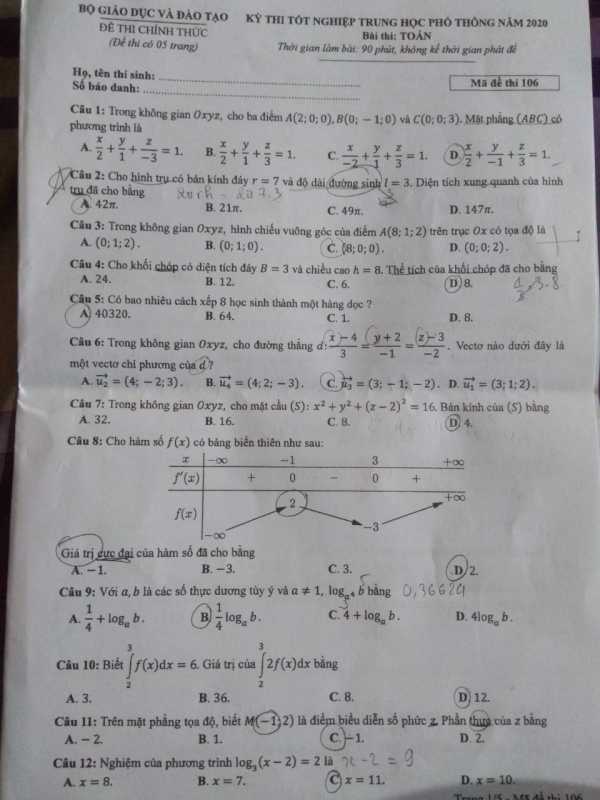 BỘ GIÁO DỤC VÀ ĐÀO TẠO
ĐỀ THI CHÍNH THỨC
(Đề thi có 05 trang)
KỲ THI TỐT NGHIỆP TRUNG HỌC PHỔ THÔNG NĂM 2020
Bài thi: TOÁN
Thời gian làm bài: 90 phút, không kể thời gian phát đề
Họ, tên thí sinh: ..............................
Số báo danh: ..............................
Mã đề thi 106
Câu 1: Trong không gian Oxyz, cho ba điểm A(2; 0; 0), B(0; −1; 0) và C(0; 0; 3). Mặt phẳng (ABC) có
phương trình là
A. x/2 + y/1 + z/−3 = 1. B. x/2 + y/1 + z/3 = 1. C. x/−2 + y/1 + z/3 = 1. D. x/2 + y/−1 + z/3 = 1.
Câu 2: Cho hình trụ có bán kính đáy r = 7 và độ dài đường sinh l = 3. Diện tích xung quanh của hình
trụ đã cho bằng
A. 42π. B. 21π. C. 49π. D. 147π.
Câu 3: Trong không gian Oxyz, hình chiếu vuông góc của điểm A(8; 1; 2) trên trục Ox có tọa độ là
A. (0; 1; 2). B. (0; 1; 0). C. (8; 0; 0). D. (0; 0; 2).
Câu 4: Cho khối chóp có diện tích đáy B = 3 và chiều cao h = 8. Thể tích của khối chóp đã cho bằng
A. 24. B. 12. C. 6. D. 8. 1/3.3.8
Câu 5: Có bao nhiêu cách xếp 8 học sinh thành một hàng dọc ?
A. 40320. B. 64. C. 1. D. 8.
Câu 6: Trong không gian Oxyz, cho đường thẳng d: x−4/3 = y+2/−1 = z−3/−2. Vectơ nào dưới đây là
một vectơ chỉ phương của d ?
A. u₂ = (4; −2; 3). B. u₄ = (4; 2; −3). C. u₃ = (3; −1; −2). D. u₁ = (3; 1; 2).
Câu 7: Trong không gian Oxyz, cho mặt cầu (S): x² + y² + (z − 2)² = 16. Bán kính của (S) bằng
A. 32. B. 16. C. 8. D. 4.
Câu 8: Cho hàm số f(x) có bảng biến thiên như sau:
x −∞ −1 3 +∞
f′(x) + 0 − 0 +
f(x) −∞ 2 −3 +∞
Giá trị cực đại của hàm số đã cho bằng
A. −1. B. −3. C. 3. D. 2.
Câu 9: Với a, b là các số thực dương tùy ý và a ≠ 1, log_{a⁴} b bằng
A. 1/4 + logₐ b. B. 1/4 logₐ b. C. 4 + logₐ b. D. 4logₐ b.
Câu 10: Biết ∫₂³ f(x)dx = 6. Giá trị của ∫₂³ 2f(x)dx bằng
A. 3. B. 36. C. 8. D. 12.
Câu 11: Trên mặt phẳng tọa độ, biết M(−1; 2) là điểm biểu diễn số phức z. Phần thực của z bằng
A. − 2. B. 1. C. −1. D. 2.
Câu 12: Nghiệm của phương trình log₃(x − 2) = 2 là x - 2 = 9
A. x = 8. B. x = 7. C. x = 11. D. x = 10.
Trang 1/5 - Mã đề thi 106